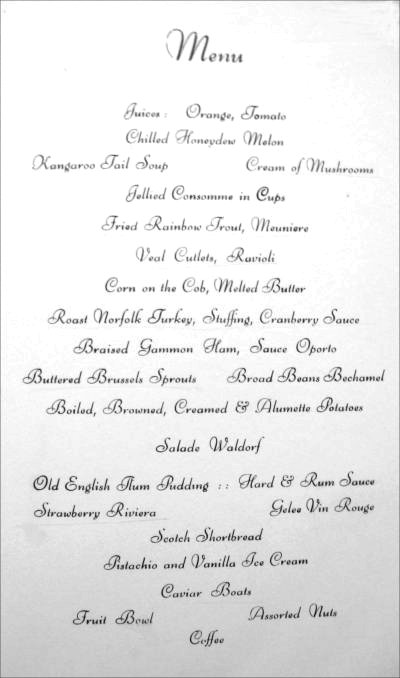 Menu
Juices : Orange, Tomato
Chilled Honeydew Melon
Kangaroo Tail Soup Cream of Mushrooms
Jellied Consomme in Cups
Fried Rainbow Trout, Meuniere
Veal Cutlets, Ravioli
Corn on the Cob, Melted Butter
Roast Norfolk Turkey, Stuffing, Cranberry Sauce
Braised Gammon Ham, Sauce Oporto
Buttered Brussels Sprouts Broad Beans Bechamel
Boiled, Browned, Creamed & Alumette Potatoes
Salade Waldorf
Old English Plum Pudding : : Hard & Rum Sauce
Strawberry Riviera Gelee Vin Rouge
Scotch Shortbread
Pistachio and Vanilla Ice Cream
Caviar Boats
Fruit Bowl Assorted Nuts
Coffee